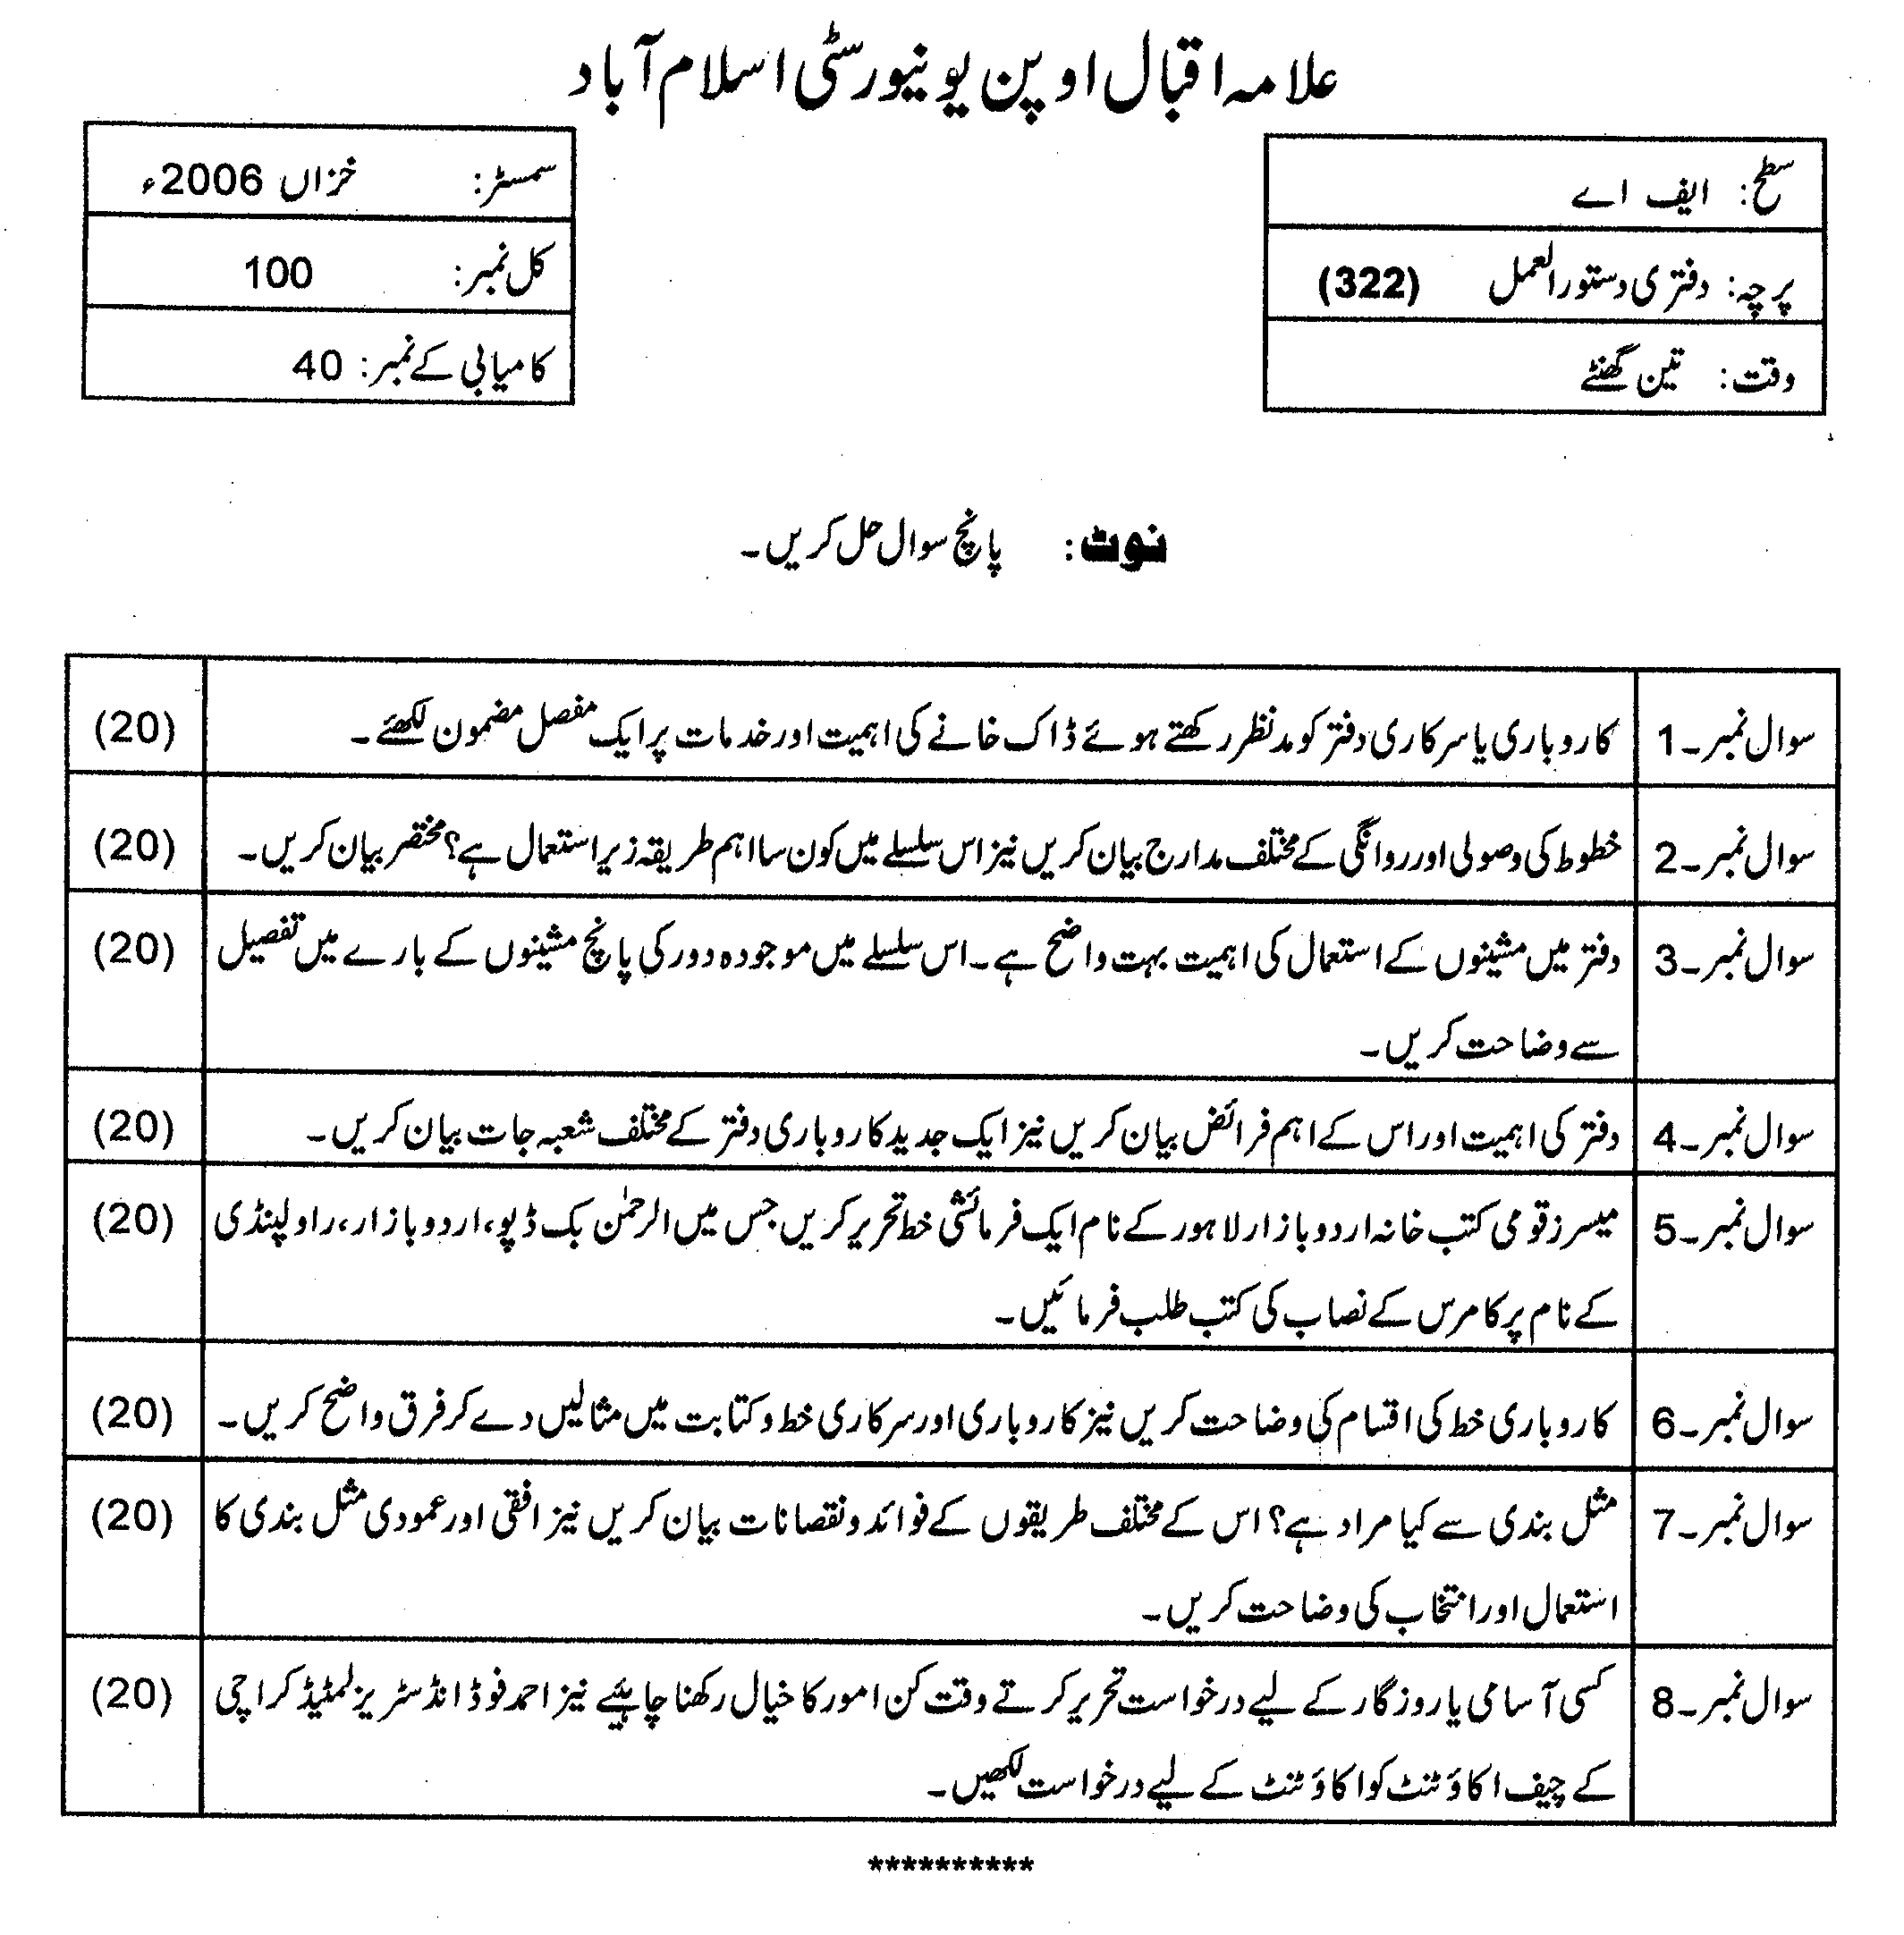 علامہ اقبال اوپن یونیورسٹی اسلام آباد
سطح: ایف اے
پرچہ: دفتری دستورالعمل (322)
وقت: تین گھنٹے
سمسٹر: خزاں 2006ء
کل نمبر: 100
کامیابی کے نمبر: 40
نوٹ: پانچ سوال حل کریں۔
سوال نمبر۔1 کاروباری یا سرکاری دفتر کو مدنظر رکھتے ہوئے ڈاک خانے کی اہمیت اور خدمات پر ایک مفصل مضمون لکھئے۔ (20)
سوال نمبر۔2 خطوط کی وصولی اور روانگی کے مختلف مدارج بیان کریں نیز اس سلسلے میں کون سا اہم طریقہ زیر استعمال ہے؟ مختصر بیان کریں۔ (20)
سوال نمبر۔3 دفتر میں مشینوں کے استعمال کی اہمیت بہت واضح ہے۔ اس سلسلے میں موجودہ دور کی پانچ مشینوں کے بارے میں تفصیل (20)
سے وضاحت کریں۔
سوال نمبر۔4 دفتر کی اہمیت اور اس کے اہم فرائض بیان کریں نیز ایک جدید کاروباری دفتر کے مختلف شعبہ جات بیان کریں۔ (20)
سوال نمبر۔5 میسرز قومی کتب خانہ اردو بازار لاہور کے نام ایک فرمائشی خط تحریر کریں جس میں الرحمٰن بک ڈپو، اردو بازار، راولپنڈی (20)
کے نام پر کامرس کے نصاب کی کتب طلب فرمائیں۔
سوال نمبر۔6 کاروباری خط کی اقسام کی وضاحت کریں نیز کاروباری اور سرکاری خط و کتابت میں مثالیں دے کر فرق واضح کریں۔ (20)
سوال نمبر۔7 مثل بندی سے کیا مراد ہے؟ اس کے مختلف طریقوں کے فوائد و نقصانات بیان کریں نیز افقی اور عمودی مثل بندی کا (20)
استعمال اور انتخاب کی وضاحت کریں۔
سوال نمبر۔8 کسی آسامی یا روزگار کے لیے درخواست تحریر کرتے وقت کن امور کا خیال رکھنا چاہیئے نیز احمد فوڈ انڈسٹریز لمٹیڈ کراچی (20)
کے چیف اکاؤنٹنٹ کو اکاؤنٹنٹ کے لیے درخواست لکھیں۔
**********